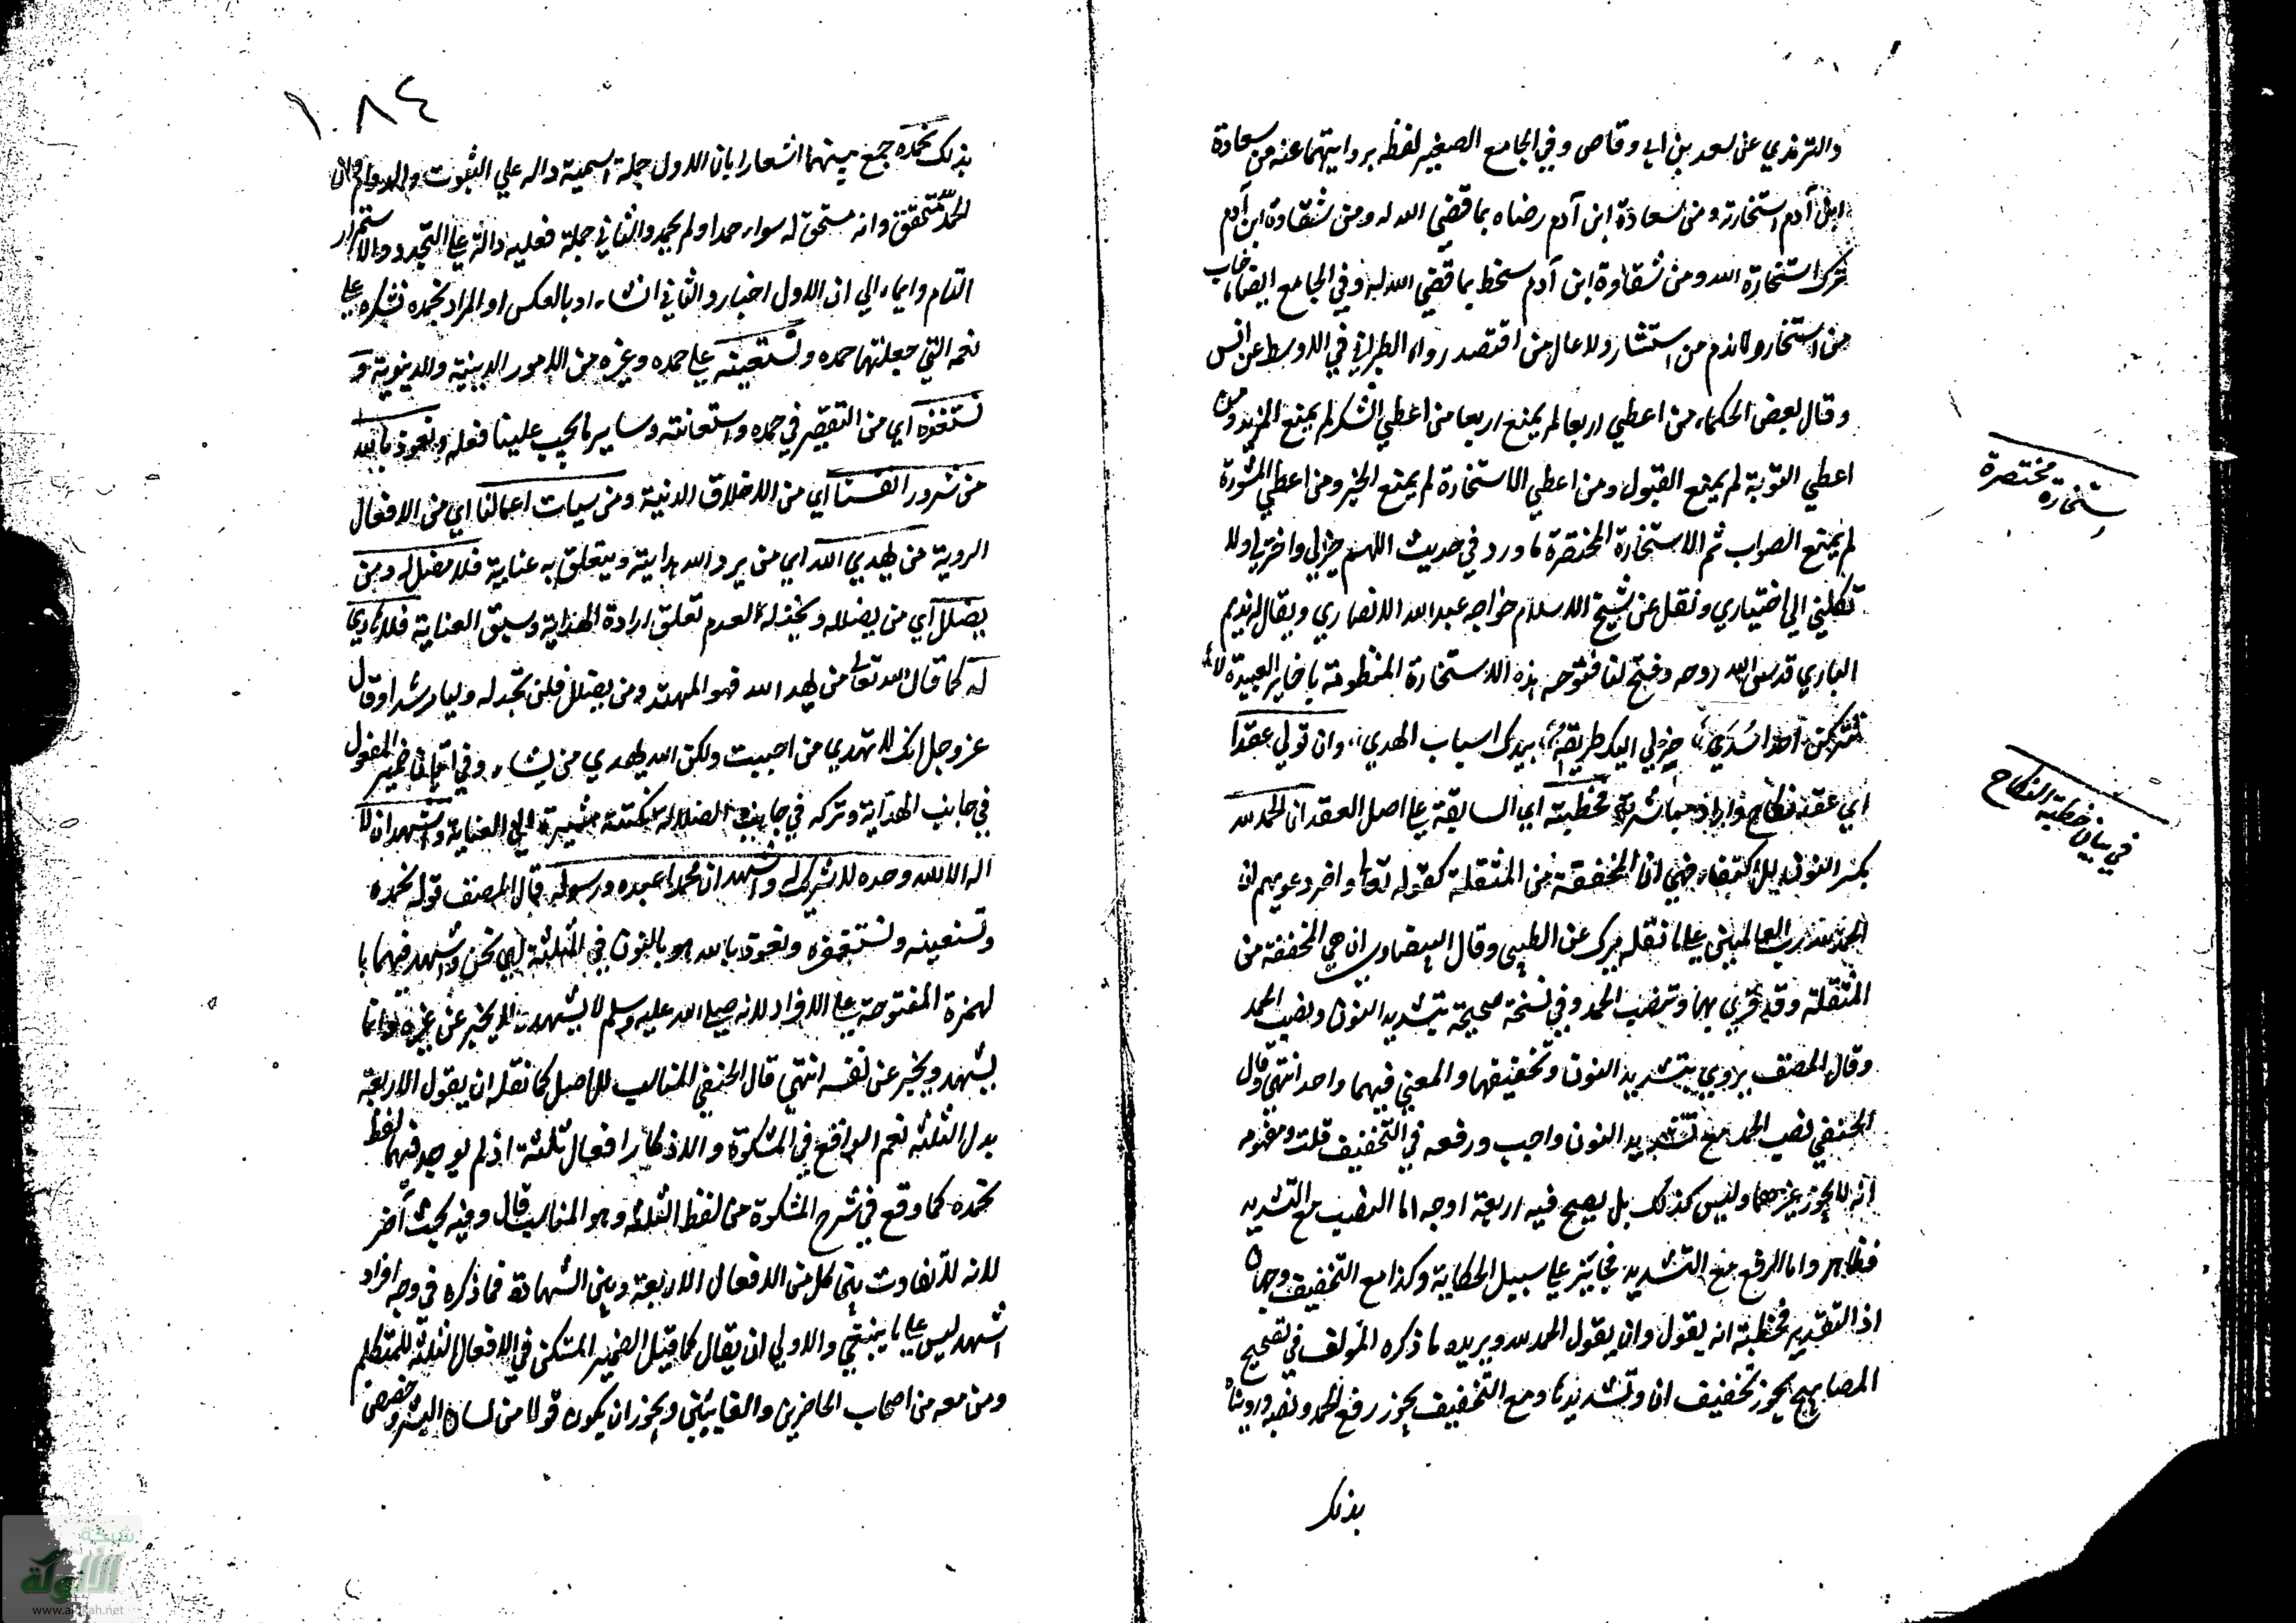 والترمذي عن سعد بن ابي وقاص وفي الجامع الصغير لفظه بروايتهما عنه من سعادة
ابن آدم استخارته ومن سعادة ابن آدم رضاه بما قضى الله له ومن شقاوة ابن آدم
تركه استخارة الله ومن شقاوة ابن آدم سخط بما قضي الله له وفي الجامع ايضا ما خاب
من استخار ولا ندم من استشار ولا عال من اقتصد رواه الطبراني في الاوسط عن انس
وقال بعض الحكماء من اعطي اربعا لم يمنع اربعا من اعطي الشكر لم يمنع المزيد ومن
اعطي التوبة لم يمنع القبول ومن اعطي الاستخارة لم يمنع الخير ومن اعطي المشورة
لم يمنع الصواب ثم الاستخارة المختصرة ما ورد في حديث اللهم خر لي واختر لي ولا
تكلني الي اختياري ونقل عن شيخ الاسلام خواجه عبد الله الانصاري ويقال له نديم
الباري قدس الله روحه وفتح لنا فتوحه هذه الاستخارة المنظومة يا خاير العبيدة لا
تتركن احدا سُدَي خر لي اليك طريقة بيدك اسباب الهدي وان تولي عقدا
اي عقد نكاح واراد مباشرته فخطبته اي السابقة علي اصل العقد ان الحمد لله
بكسر النون للاكتفاء فهي ان المخففة من المثقلة كقوله تعا واخر دعويهم ان
الحمد لله رب العالمين علي ما نقله ميرك عن الطيبي وقال البيضاوي ان هي المخففة من
المثقلة وقد قري بها وبنصب الحمد وفي نسخة صحيحة بتشديد النون ونصب الحمد
وقال المصنف يروي بتشديد النون وتخفيفها والمعني فيهما واحد انتهي وقال
الحنفي نصب الحمد مع تشديد النون واجب ورفعه في التخفيف قلت ومفهومه
انه لا يجوز غيرهما وليس كذلك بل يصح فيه اربعة اوجه اما النصب مع التشديد
فظاهر واما الرفع مع التشديد فجائز علي سبيل الحكاية وكذا مع التخفيف وجهان
اذ التقدير فخطبته انه يقول وان يقول الحمد لله ويريده ما ذكره المؤلف في تصحيح
المصابيح يجوز تخفيف ان وتشديدها ومع التخفيف يجوز رفع الحمد ونصبه ورويناه
بذلك
استخارة مختصرة
في بيان خطبة النكاح
١٠٨٤
بذلك نحمده جمع بينهما اشعارا بان الاول جملة اسمية داله علي الثبوت والدوام وان
الحمد متحقق وانه مستحق له سواء حمد او لم يحمد والثاني جملة فعليه دالة علي التجدد والاستمرار
التام وايماء الي ان الاول اخبار والثاني انشاء او بالعكس او المراد نحمده نشكره علي
نعمه التي جعلتها حمده ونستعينه علي حمده وغيره من الامور الدينية والدنيوية و
نستغفره اي من التقصير في حمده واستعانته وساير ما يجب علينا فعله ونعوذ بالله
من شرور انفسنا اي من الاخلاق الدنية ومن سيات اعمالنا اي من الافعال
الردية من يهدي الله اي من يرد الله هدايته ويتعلق به عناية فلا مضل له ومن
يضلل اي من يضلله ويخذله لعدم تعلق ارادة الهداية وسبق العناية فلا هادي
له كما قال الله تعالي من يهد الله فهو المهتد ومن يضلل فلن تجد له وليا مرشدا وقال
عز وجل انك لا تهدي من احببت ولكن الله يهدي من يشاء وفي اتيان ضمير المفعول
في جانب الهداية وتركه في جانب الضلالة نكتة مشيرة الي العناية واشهد ان لا
اله الا الله وحده لا شريك له واشهد ان محمدا عبده ورسوله قال المصنف قوله نحمده
ونستعينه ونستغفره ونعوذ بالله هو بالنون في الثلثة اي نحن واشهد فيهما با
لهمزة المفتوحة علي الافراد لانه صلي الله عليه وسلم لا يشهد ولا يخبر عن غيره وانما
يشهد ويخبر عن نفسه انتهي قال الحنفي المناسب للاصل كما نقله ان يقول الاربعة
بدل الثلثه نعم الواقع في المشكوة والاذكار افعال ثلثة اذ لم يوجد فيهما لفظ
نحمده كما وقع في شرح المشكوة من لفظ الثلثه وهو المناسب قال وفيه بحث آخر
لانه لا تفاوت بين كل من الافعال الاربعة وبين الشهادة فما ذكره في وجه افراد
اشهد ليس علي ما ينبغي والاولي ان يقال كما قيل الضمير المستكن في الافعال الثلثه للمتكلم
ومن معه من اصحاب الحاضرين والغايبين ويجوز ان يكون قولا من لسان البشر وخصص
شبكة
الألوكة
www.alukah.net